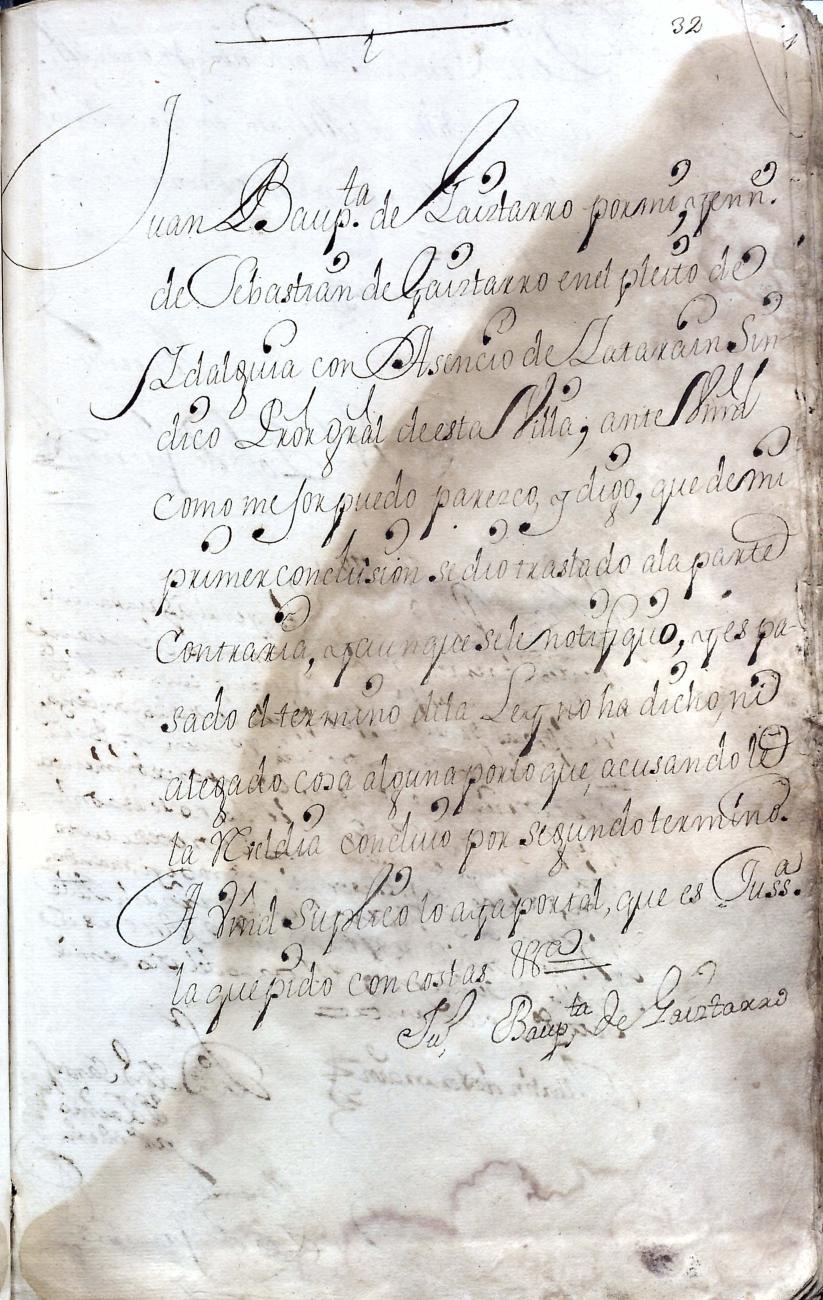 32
Juan Baup.ta de Gaiztarro por mi, y en n.e
de Sebastian de Gaiztarro en el pleito de
Idalguia con Asencio de Latarain Sin-
dico Pror gral de esta Villa, ante Vmd
como mejor puedo parezco, y digo, que de mi
primer conclusion se dio traslado a la parte
Contraria, y aunque se le notifiquó, y es pa-
sado el termino de la Ley no ha dicho, ni
alegado cosa alguna por lo que, acusandole
la Reldia concluio por segundo termino.
A Vmd Suplico lo aya por tal, que es Juss.a
la que pido con costas &.a
Ju, Baup.ta de Gaiztarro